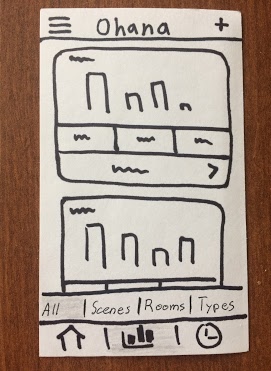 Ohana +
All | Scenes | Rooms | Types